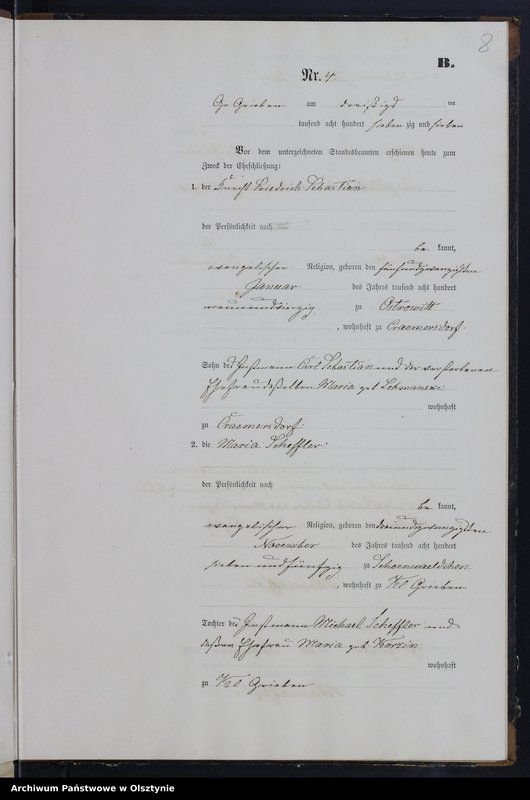 8
B.
Nr. 4
Gr Grieben am dreißigs ten
tausend acht hundert sieben zig und sieben
Vor dem unterzeichneten Standesbeamten erschienen heute zum
Zweck der Eheschließung:
1. der Knecht Friedrich Sebastian
der Persönlichkeit nach
be kannt,
evangelischer Religion, geboren den fünfundzwanzigsten
Januar des Jahres tausend acht hundert
neunundvierzig zu Ostrowitt
, wohnhaft zu Craemersdorf
Sohn des Instmann Carl Sebastian und der verstorbenen
Ehefrau deßelben Maria geb
wohnhaft
zu Craemersdorf
2. die Maria Scheffler
der Persönlichkeit nach
be kannt,
evangelischer Religion, geboren den dreiundzwanzigsten
November des Jahres tausend acht hundert
sieben und fünfzig zu Schoenwaeldchen
, wohnhaft zu Kl Grieben
Tochter des Instmann Michael Scheffler und
deßen Ehefrau Maria geb
wohnhaft
zu Kl Grieben
Archiwum Państwowe w Olsztynie